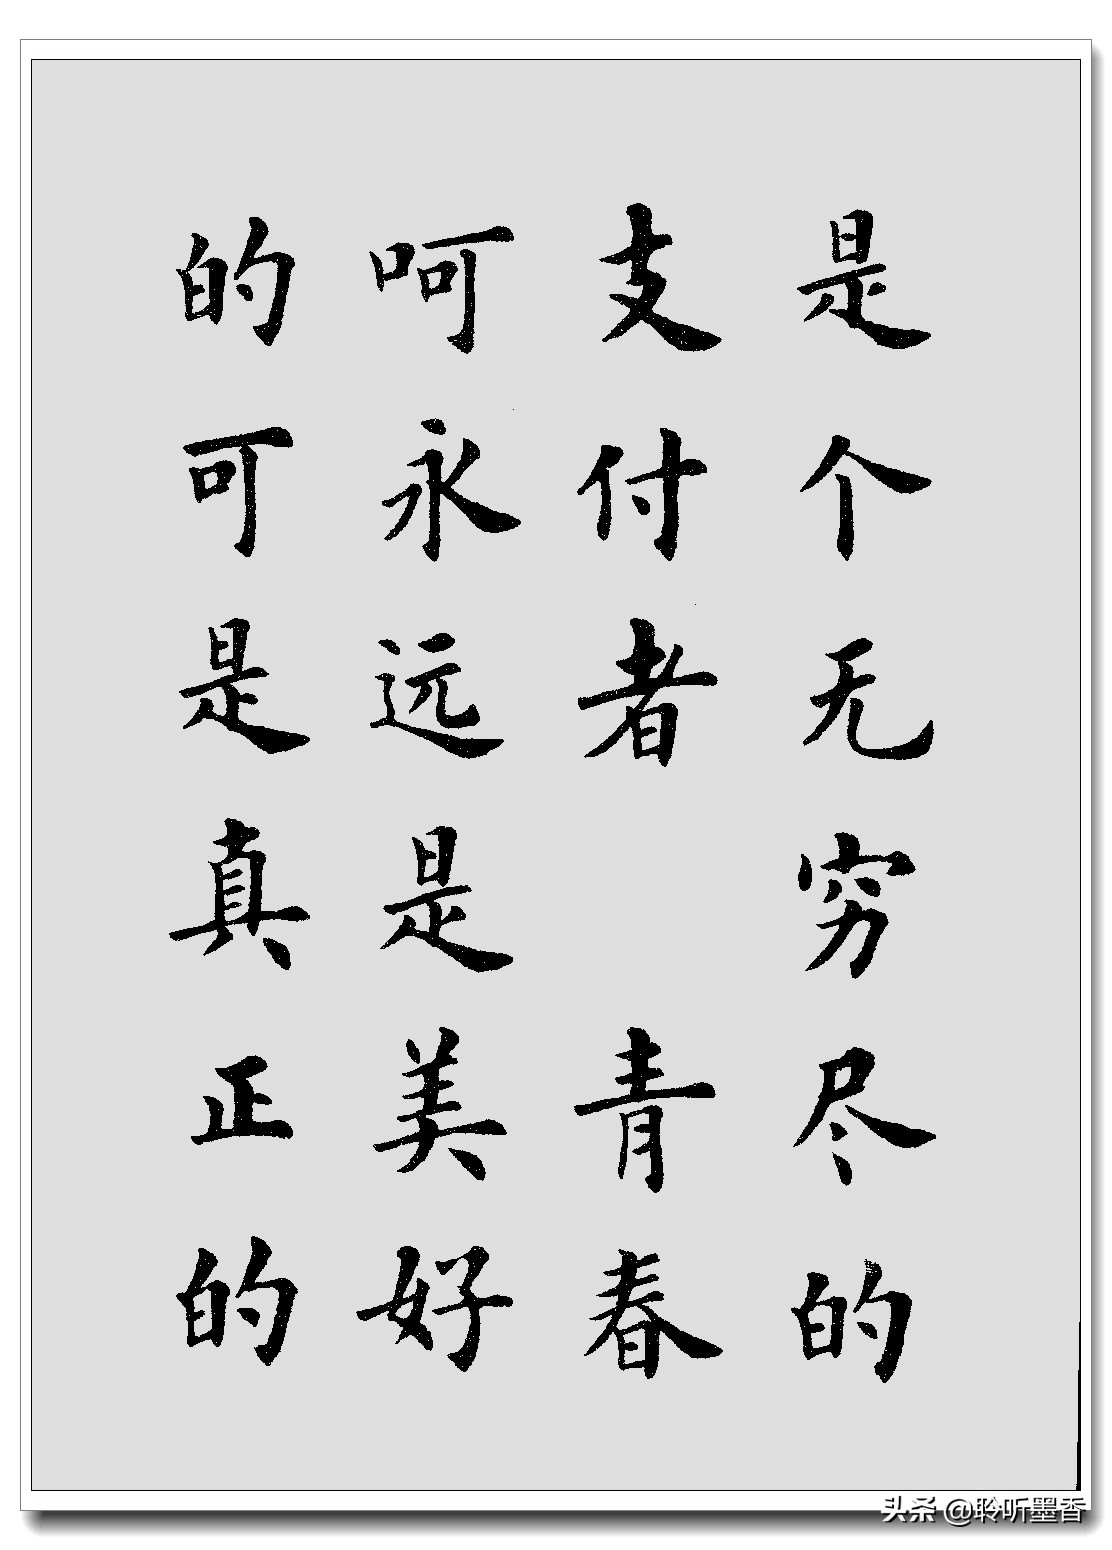 是个无穷尽的
支付者 青春
呵永远是美好
的可是真正的
头条 @聆听墨香